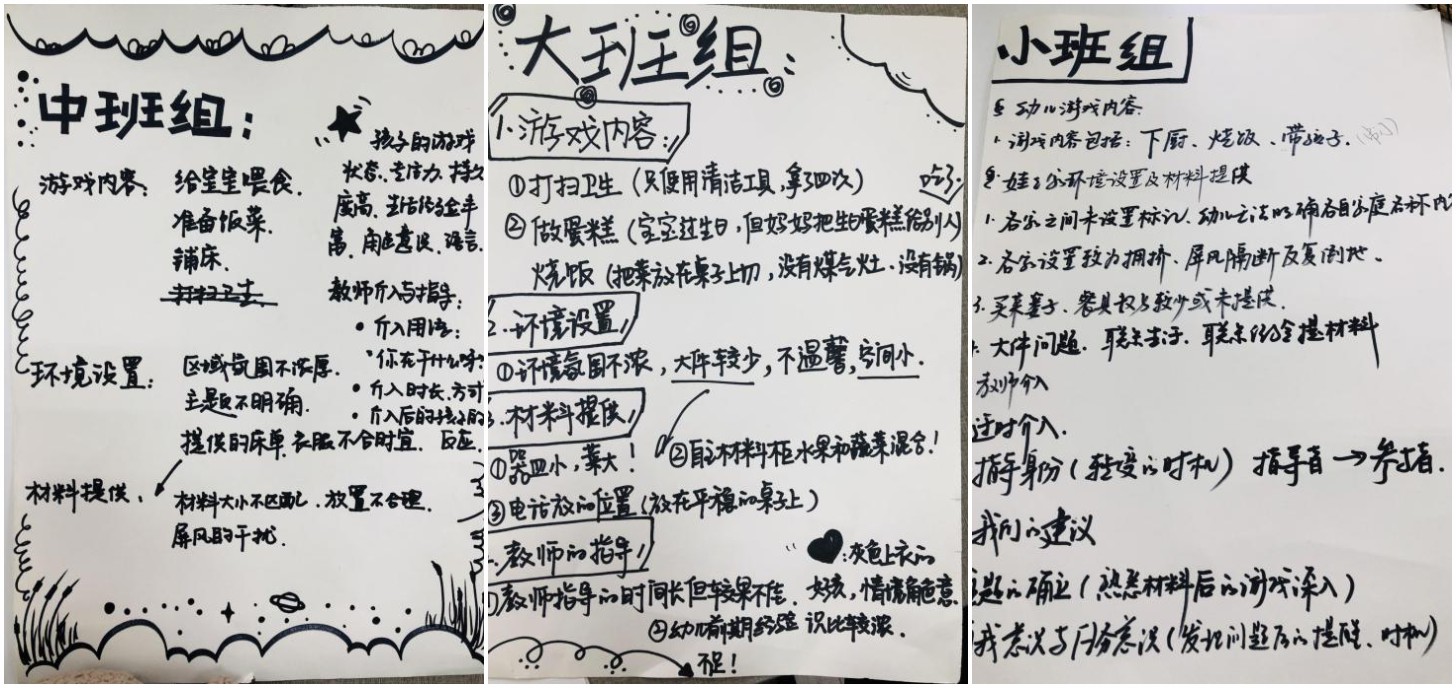 中班组：
游戏内容：给宝宝喂食.
准备饭菜.
铺床.
打扫卫生.
环境设置：区域氛围不浓厚.
主题不明确.
提供的床单.衣服不合时宜.
材料提供：
材料大小不匹配.放置不合理.
屏风的干扰.
孩子的游戏
状态.专注力.持久
度高.生活经验丰
富.角色意识.语言
教师介入与指导：
• 介入用语：
"你在干什么呀
• 介入时长.方式
• 介入后的孩子的
反应.
大班组：
1.游戏内容：
①打扫卫生（只使用清洁工具,拿了四次）
②做蛋糕（宝宝过生日,但妈妈把生日蛋糕给别人
吃了.）
烧饭（把菜放在桌子上切,没有煤气灶.没有锅）
2.环境设置
①环境氛围不浓,大件较少,不温馨,空间小.
3.材料提供
①器皿小,菜大！
②自主材料柜水果和蔬菜混合！
③电话放的位置（放在平稳的桌子上）
教师的指导
教师指导的时间长但效果不佳.
②幼儿前期经验
不足！
：灰色上衣的
女孩,情境角色意
识比较浓.
小班组
幼儿游戏内容
1.游戏内容包括：下厨、烧饭、带孩子.
娃娃家环境设置及材料提供
1.各家之间未设置标识.幼儿无法明确各自家庭
2.各家设置较为拥挤、屏风隔断反复倒地.
3.买菜篮子、餐具投放较少或未提供.
大件问题.
教师介入
适时介入.
指导身份（转变的时机） 指导者→参与者.
我们的建议
题的确立（熟悉材料后的游戏深入）
我意识与任务意识（发现问题后的提醒、时机）